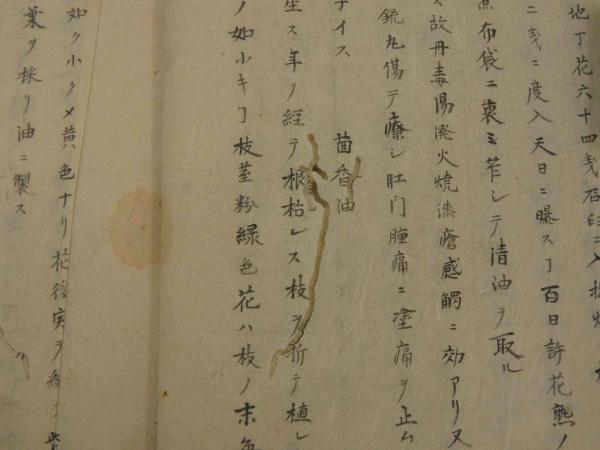 地丁花六十四戔石臼ニ入
ニ戔ニ度入天日ニ曝スヿ百日許花熟ノ
布袋ニ裹ミ笮シテ清油ヲ取ル
故丹毒湯潑火焼漆瘡感觸ニ効アリ又
銃丸傷テ療シ肛门腫痛ニ塗痛ヲ止ム
ナイス
茴香油
生ス年ヲ經テ根枯レス枝ヲ折テ植レ
ノ如小キヿ枝莖粉緑色花ハ枝ノ末
如ク小クメ黄色ナリ花後実ヲ結
葉ヲ採リ油ニ製ス